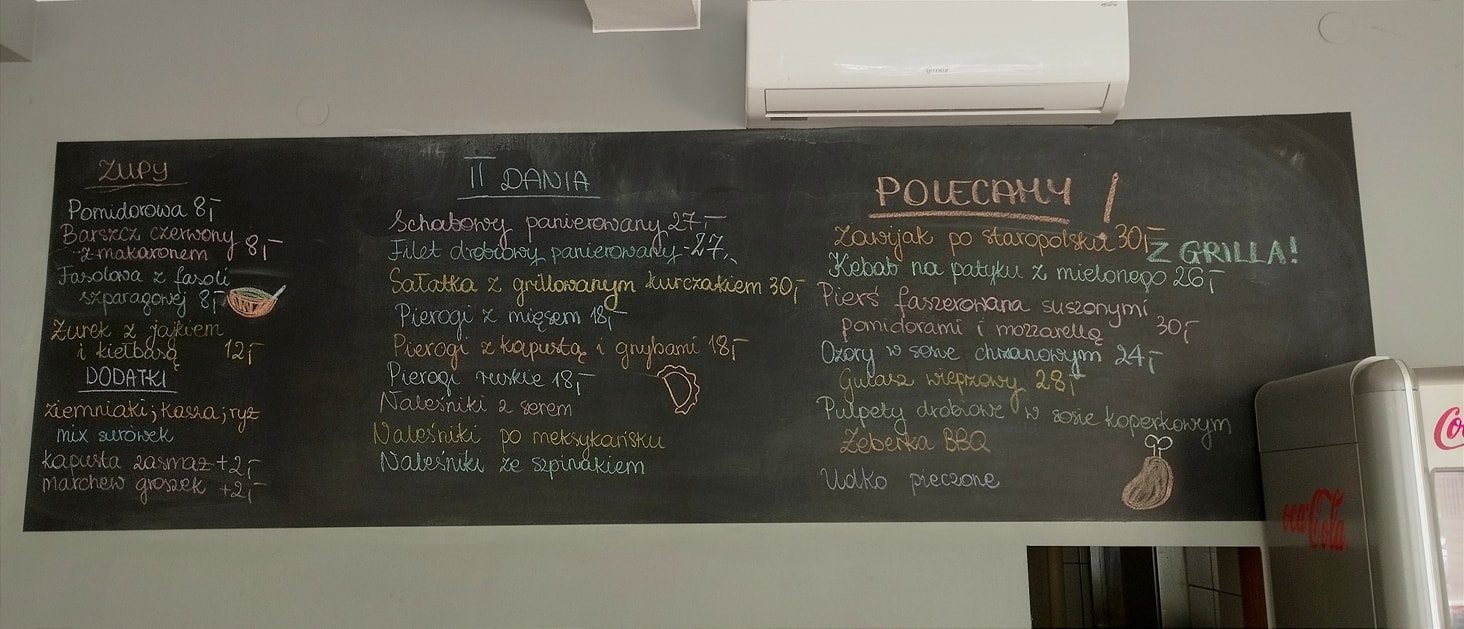 ZUPY
Pomidorowa 8,-
Barszcz czerwony
z makaronem 8,-
Fasolowa z fasoli
szparagowej 8,-
Żurek z jajkiem
i kiełbasą 12,-
DODATKI
ziemniaki; kasza; ryż
mix surówek
kapusta zasmaż +2,-
marchew groszek +2,-
II DANIA
Schabowy panierowany 27,-
Filet drobiowy panierowany - 27,-
Sałatka z grillowanym kurczakiem 30,-
Pierogi z mięsem 18,-
Pierogi z kapustą i grzybami 18,-
Pierogi ruskie 18,-
Naleśniki z serem
Naleśniki po meksykańsku
Naleśniki ze szpinakiem
POLECAMY!
Zawijak po staropolsku 30,-
Z GRILLA!
Kebab na patyku z mielonego 26,-
Pierś faszerowana suszonymi
pomidorami i mozzarellą 30,-
Ozory w sosie chrzanowym 24,-
Gulasz wieprzowy 28,-
Pulpety drobiowe w sosie koperkowym
Żeberka BBQ
Udko pieczone
Coca-Cola